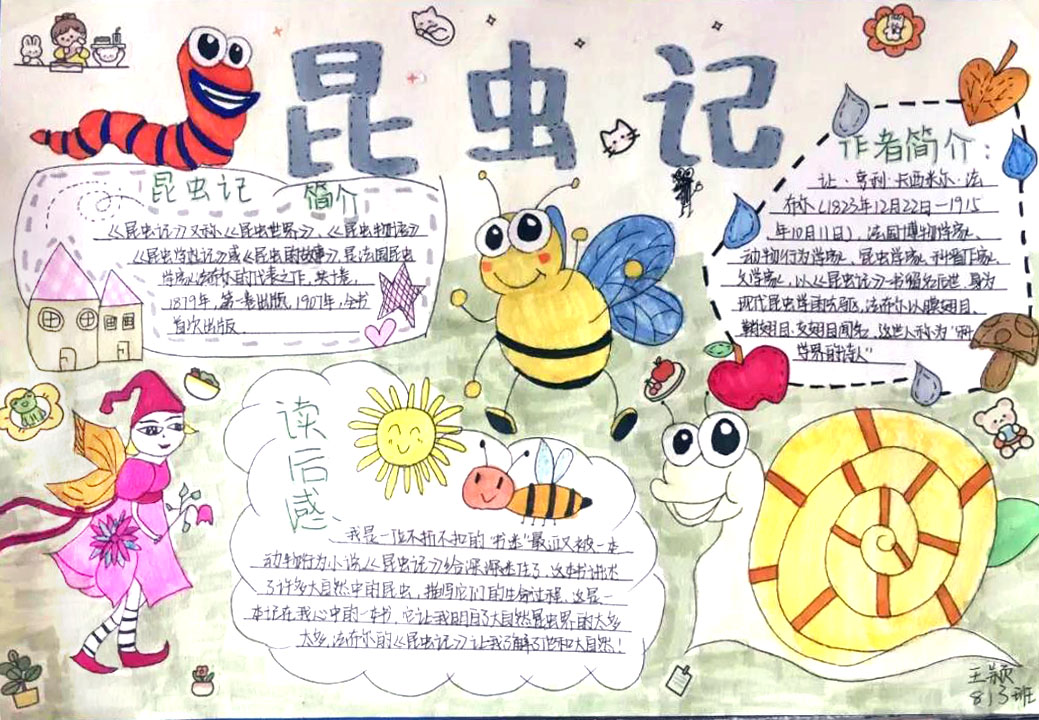 昆虫记
昆虫记
简介
《昆虫记》又称《昆虫世界》、《昆虫物语》
《昆虫学札记》或《昆虫的故事》是法国昆虫
学家法布尔的代表之作,共十卷,
1879年,第一卷出版,1907年,全书
首次出版.
作者简介:
让·亨利·卡西米尔·法
布尔(1823年12月22日—1915
年10月11日),法国博物学家、
动物行为学家、昆虫学家、科普作家、
文学家,以《昆虫记》一书留名后世,身为
现代昆虫学
法布尔以膜翅目、
鞘翅目、
翅目闻名,这世人称为“
学界的诗人”
读后感
我是一位不折不扣的“书迷”最近又被一本
动物行为小说《昆虫记》给深深迷住了.这本书讲述
了许多大自然中的昆虫,描写它们的生命过程.这是一
本记在我心中的一本书.它让我明白了大自然昆虫界的太多
太多,法布尔的《昆虫记》让我了解了
和大自然!
王颖
813班